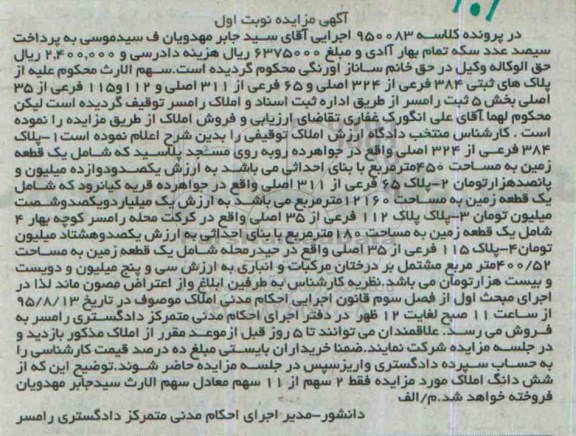 آگهی مزایده نوبت اول
در پرونده کلاسه ۹۵۰۰۸۳ اجرایی آقای سید جابر مهدویان ف سیدموسی به پرداخت
سیصد عدد سکه تمام بهار آزادی و مبلغ ۶۳۷۵۰۰۰ ریال هزینه دادرسی و ۲,۴۰۰,۰۰۰ ریال
حق الوکاله وکیل در حق خانم ساناز اورنگی محکوم گردیده است.سهم الارث محکوم علیه از
پلاک های ثبتی ۳۸۴ فرعی از ۳۲۴ اصلی و ۶۵ فرعی از ۳۱۱ اصلی و ۱۱۲و۱۱۵ فرعی از ۳۵
اصلی بخش ۵ ثبت رامسر از طریق اداره ثبت اسناد و املاک رامسر توقیف گردیده است لیکن
محکوم لهما آقای علی انگورک غفاری تقاضای ارزیابی و فروش املاک از طریق مزایده را نموده
است . کارشناس منتخب دادگاه ارزش املاک توقیفی را بدین شرح اعلام نموده است۱-پلاک
۳۸۴ فرعی از ۳۲۴ اصلی واقع در جواهرده روبه روی مسجد پلاسید که شامل یک قطعه
زمین به مساحت ۴۵۰مترمربع با بنای احداثی می باشد به ارزش یکصدودوازده میلیون و
پانصدهزارتومان ۲-پلاک ۶۵ فرعی از ۳۱۱ اصلی واقع در جواهرده قریه کیانرود که شامل
یک قطعه زمین به مساحت ۱۲۱۶۰مترمربع می باشد به ارزش یک میلیاردویکصدوشصت
میلیون تومان ۳-پلاک پلاک ۱۱۲ فرعی از ۳۵ اصلی واقع در کرکت محله رامسر کوچه بهار ۴
شامل یک قطعه زمین به مساحت ۱۸۰مترمربع با بنای احداثی به ارزش یکصدوهشتاد میلیون
تومان۴-پلاک ۱۱۵ فرعی از ۳۵ اصلی واقع در حیدرمحله شامل یک قطعه زمین به مساحت
۴۰۰/۵۲متر مربع مشتمل بر درختان مرکبات و انباری به ارزش سی و پنج میلیون و دویست
و بیست هزارتومان می باشد.نظریه کارشناس به طرفین ابلاغ واز اعتراض مصون ماند لذا در
اجرای مبحث اول از فصل سوم قانون اجرایی احکام مدنی املاک موصوف در تاریخ ۹۵/۸/۱۳
از ساعت ۱۱ صبح لغایت ۱۲ ظهر در دفتر اجرای احکام مدنی متمرکز دادگستری رامسر به
فروش می رسد. علاقمندان می توانند تا ۵ روز قبل ازموعد مقرر از املاک مذکور بازدید و
در جلسه مزایده شرکت نمایند.ضمنا خریداران بایستی مبلغ ده درصد قیمت کارشناسی را
به حساب سپرده دادگستری واریزسپس در جلسه مزایده حاضر شوند.توضیح این که از
شش دانگ املاک مورد مزایده فقط ۲ سهم از ۱۱ سهم معادل سهم الارث سیدجابر مهدویان
فروخته خواهد شد.م/الف
دانشور-مدیر اجرای احکام مدنی متمرکز دادگستری رامسر